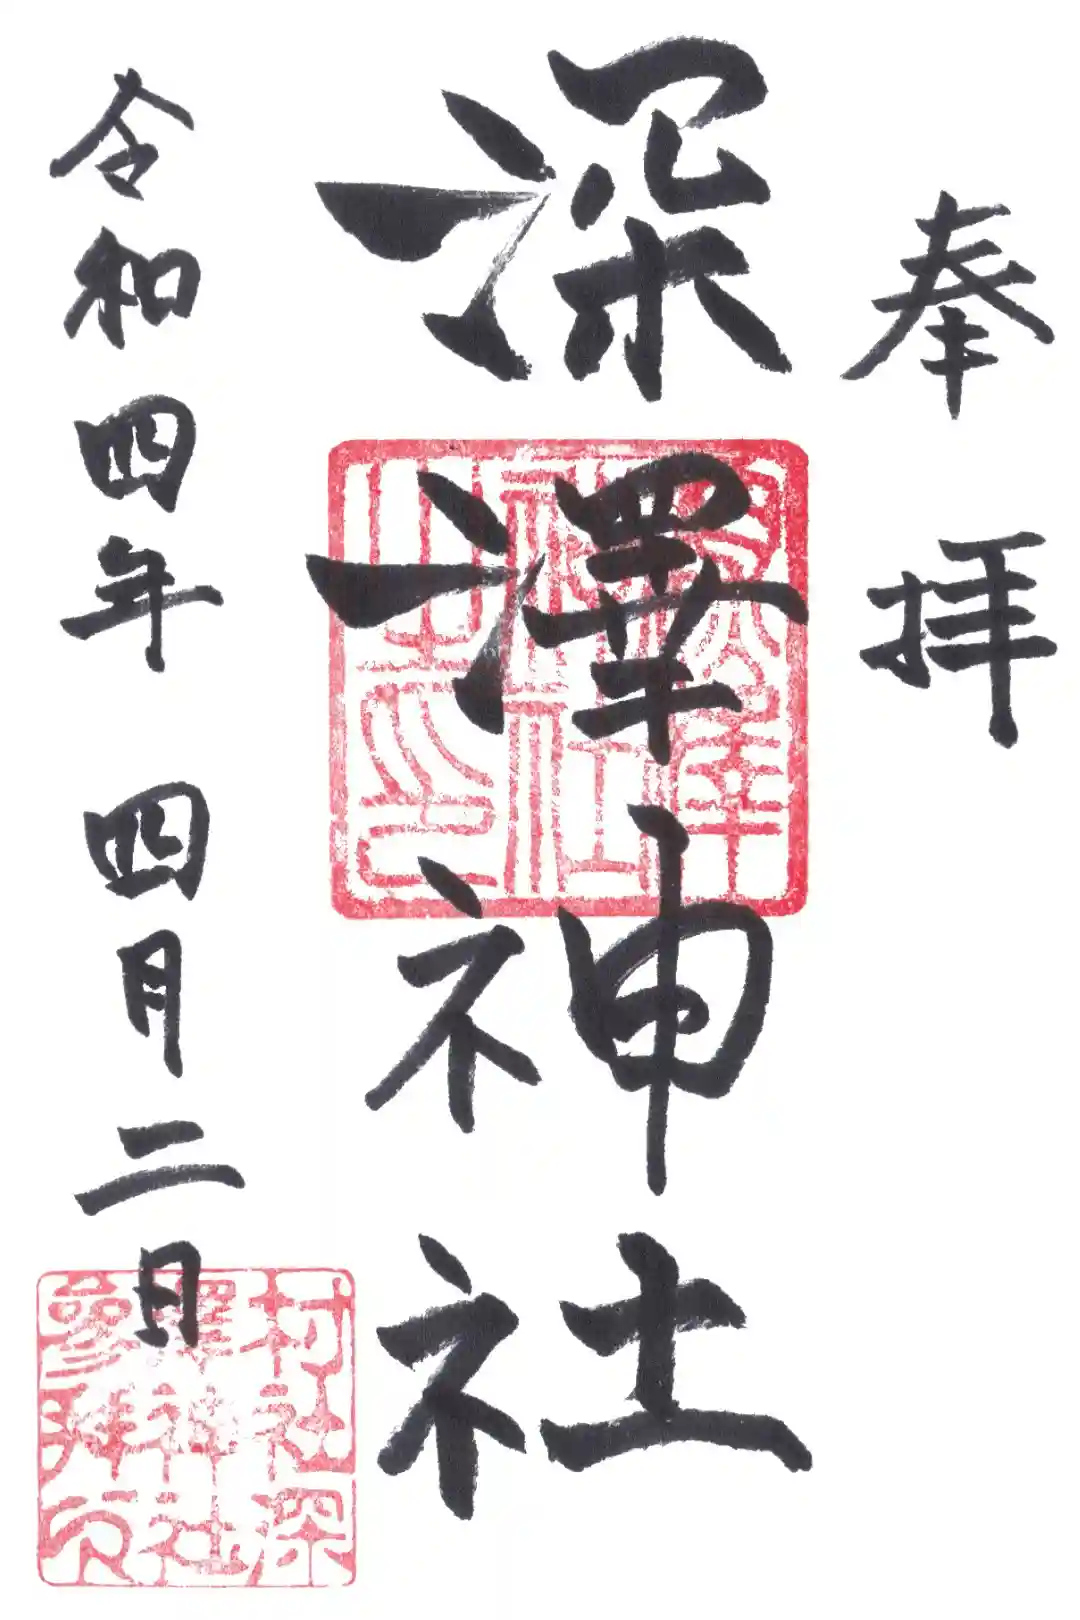 奉拝
深澤神社
令和四年 四月二日
深澤神社之印
村社深澤神社參拜之印